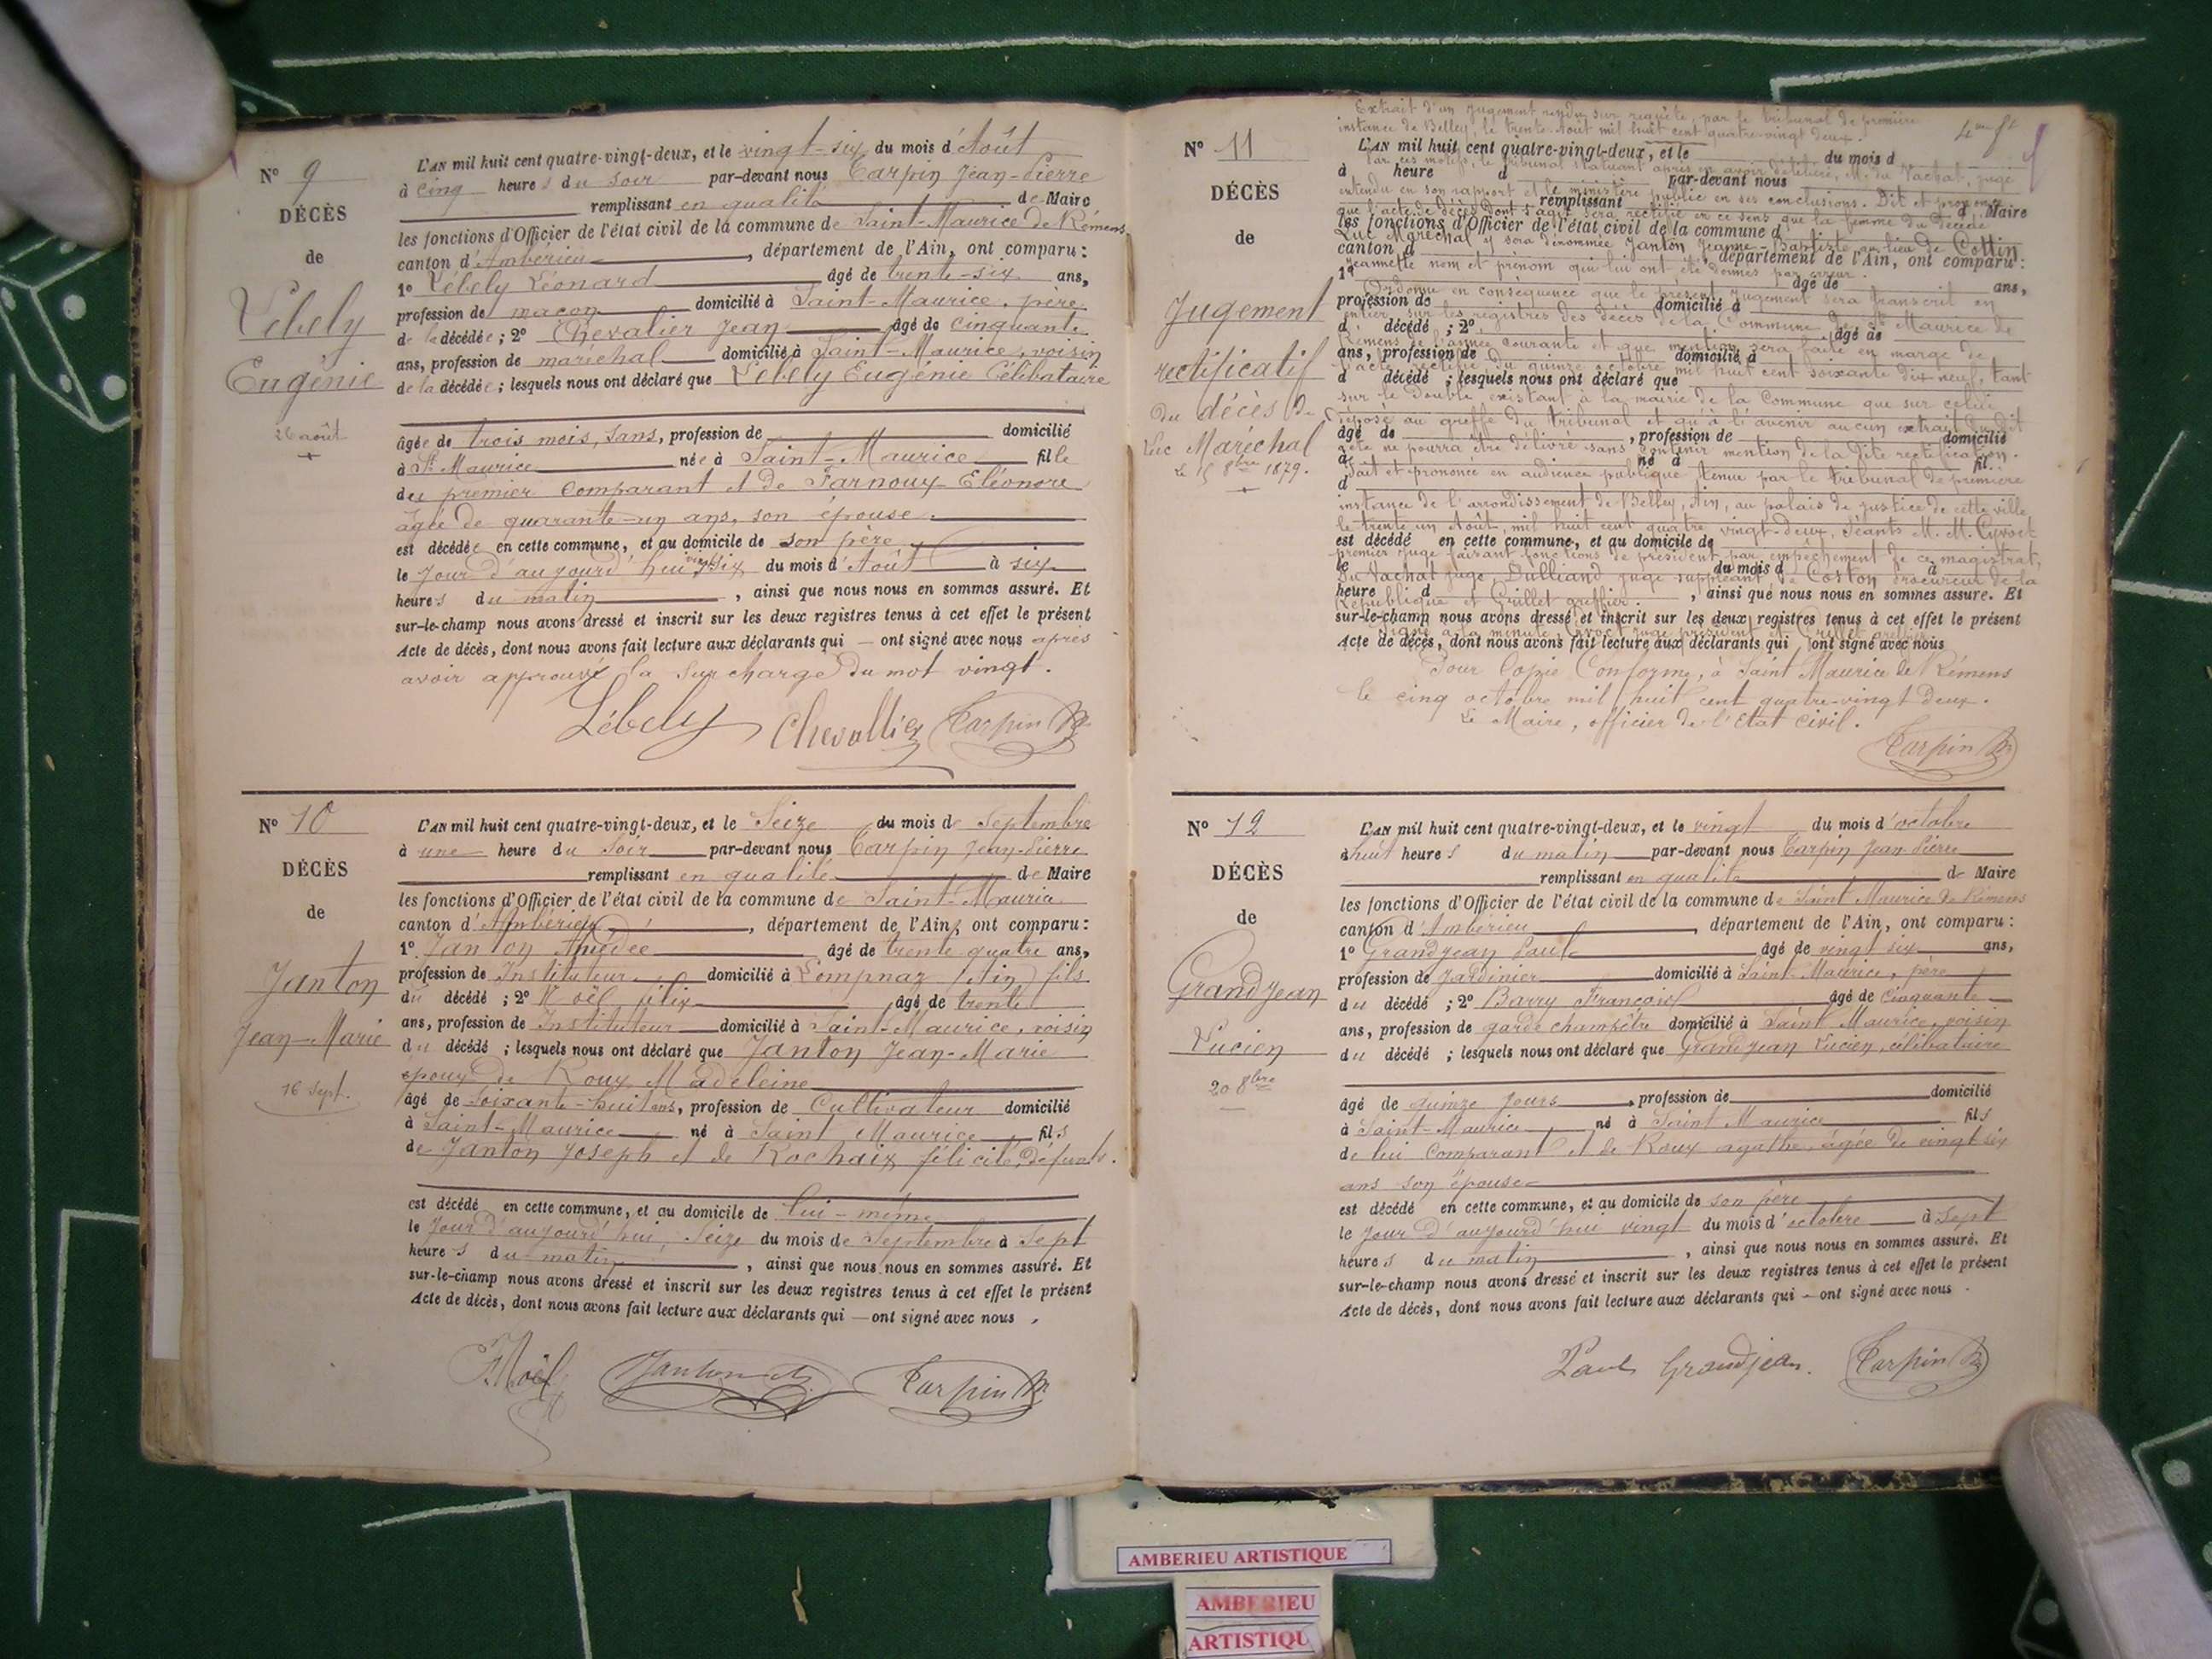 N° 9
DÉCÈS
de
Lébely
Eugénie
26 août
L'AN mil huit cent quatre-vingt-deux, et le vingt-six du mois d'Août
à cinq heures du soir par-devant nous Carpin Jean-Pierre
remplissant en qualité de Maire
les fonctions d'Officier de l'état civil de la commune de Saint-Maurice de Rémens
canton d'Ambérieu, département de l'Ain, ont comparu :
1° Lébely Léonard âgé de trente-six ans,
profession de maçon domicilié à Saint-Maurice, père
de la décédée ; 2° Chevalier Jean âgé de cinquante
ans, profession de maréchal domicilié à Saint-Maurice, voisin
de la décédée ; lesquels nous ont déclaré que Lébely Eugénie Célibataire
âgée de trois mois, sans, profession de domicilié
à St Maurice née à Saint-Maurice fille
du premier Comparant et de Farnoux Eléonore
âgée de quarante-un ans, son épouse.
est décédée en cette commune, et au domicile de son père
le jour d'aujourd'hui vingt six du mois d'Août à six
heures du matin, ainsi que nous nous en sommes assuré. Et
sur-le-champ nous avons dressé et inscrit sur les deux registres tenus à cet effet le présent
Acte de décès, dont nous avons fait lecture aux déclarants qui — ont signé avec nous après
avoir approuvé la surcharge du mot vingt.
Lébely Chevallier Carpin
N° 10
DÉCÈS
de
Janton
Jean-Marie
16 Sept.
L'AN mil huit cent quatre-vingt-deux, et le Seize du mois de Septembre
à une heure du Soir par-devant nous Carpin Jean-Pierre
remplissant en qualité de Maire
les fonctions d'Officier de l'état civil de la commune de Saint-Maurice
canton d'Ambérieu, département de l'Ain, ont comparu :
1° Janton Amédée âgé de trente quatre ans,
profession de Instituteur domicilié à Lompnaz (Ain) fils
du décédé ; 2° Noël félix âgé de trente
ans, profession de Instituteur domicilié à Saint-Maurice, voisin
du décédé ; lesquels nous ont déclaré que Janton Jean-Marie
époux de Roux Madeleine
âgé de soixante-huit ans, profession de Cultivateur domicilié
à Saint-Maurice né à Saint Maurice fils
de Janton Joseph et de Rochaix félicité, défunts.
est décédé en cette commune, et au domicile de lui-même
le jour d'aujourd'hui, Seize du mois de Septembre à Sept
heures du matin, ainsi que nous nous en sommes assuré. Et
sur-le-champ nous avons dressé et inscrit sur les deux registres tenus à cet effet le présent
Acte de décès, dont nous avons fait lecture aux déclarants qui — ont signé avec nous.
F. Noël Janton Carpin
N° 11
DÉCÈS
de
Jugement
rectificatif
du décès de
Luc Maréchal
Le 15 8bre 1879.
Extrait d'un Jugement rendu sur requête, par le tribunal de première
instance de Belley, le trente Août mil huit cent quatre-vingt deux.
L'AN mil huit cent quatre-vingt-deux, et le du mois d
Par ces motifs, le tribunal statuant après en avoir délibéré, M. du Vachat, juge
à heure d par-devant nous
entendu en son rapport et le ministère public en ses conclusions. Dit et prononce
remplissant d Maire
que l'acte de décès dont s'agit sera rectifié en ce sens que la femme du décédé
les fonctions d'Officier de l'état civil de la commune d
Luc Maréchal y sera dénommée Janton Jeanne-Baptiste au lieu de Cottin
canton d, département de l'Ain, ont comparu :
Jeannette nom et prénom qui lui ont été donnés par erreur.
1° âgé de ans,
Ordonne en conséquence que le présent Jugement sera transcrit en
profession de domicilié à
entier sur les registres des décès de la Commune de St Maurice de
d décédé ; 2° âgé de
Rémens de l'année courante et que mention sera faite en marge de
ans, profession de domicilié à
l'acte rectifié du quinze octobre mil huit cent soixante dix neuf, tant
d décédé ; lesquels nous ont déclaré que
sur le double existant à la mairie de la Commune que sur celui
déposé au greffe du tribunal et qu'à l'avenir aucun extrait dudit
âgé de, profession de domicilié
acte ne pourra être délivré sans contenir mention de la dite rectification.
à né à fil
Fait et prononcé en audience publique tenue par le tribunal de première
d
instance de l'arrondissement de Belley, Ain, au palais de justice de cette ville
le trente un Août, mil huit cent quatre vingt-deux, Séants M. M. Cyvoct
est décédé en cette commune, et au domicile de
premier juge faisant fonctions de président par empêchement de ce magistrat,
le du mois d à
Du Vachat juge, Dulliand juge suppléant de Coston procureur de la
heure d, ainsi que nous nous en sommes assuré. Et
République et Grillet greffier.
sur-le-champ nous avons dressé et inscrit sur les deux registres tenus à cet effet le présent
Signé à la minute Cyvoct juge président et Grillet greffier
Acte de décès, dont nous avons fait lecture aux déclarants qui ont signé avec nous
Pour Copie Conforme, à Saint Maurice de Rémens
le cinq octobre mil huit cent quatre-vingt deux.
Le Maire, officier de l'Etat Civil.
Carpin
N° 12
DÉCÈS
de
Grandjean
Lucien
20 8bre
L'AN mil huit cent quatre-vingt-deux, et le vingt du mois d'octobre
à huit heures du matin par-devant nous Carpin Jean-Pierre
remplissant en qualité de Maire
les fonctions d'Officier de l'état civil de la commune de Saint Maurice de Rémens
canton d'Ambérieu, département de l'Ain, ont comparu :
1° Grandjean Paul âgé de vingt six ans,
profession de Jardinier domicilié à Saint-Maurice, père
du décédé ; 2° Barry François âgé de Cinquante
ans, profession de garde champêtre domicilié à Saint Maurice, voisin
du décédé ; lesquels nous ont déclaré que Grandjean Lucien, célibataire
âgé de quinze jours, profession de domicilié
à Saint-Maurice né à Saint Maurice fils
de lui Comparant et de Roux agathe, âgée de vingt six
ans son épouse
est décédé en cette commune, et au domicile de son père
le jour d'aujourd'hui vingt du mois d'octobre à Sept
heures du matin, ainsi que nous nous en sommes assuré. Et
sur-le-champ nous avons dressé et inscrit sur les deux registres tenus à cet effet le présent
Acte de décès, dont nous avons fait lecture aux déclarants qui — ont signé avec nous.
Paul Grandjean. Carpin
AMBERIEU ARTISTIQUE
AMBERIEU
ARTISTIQU